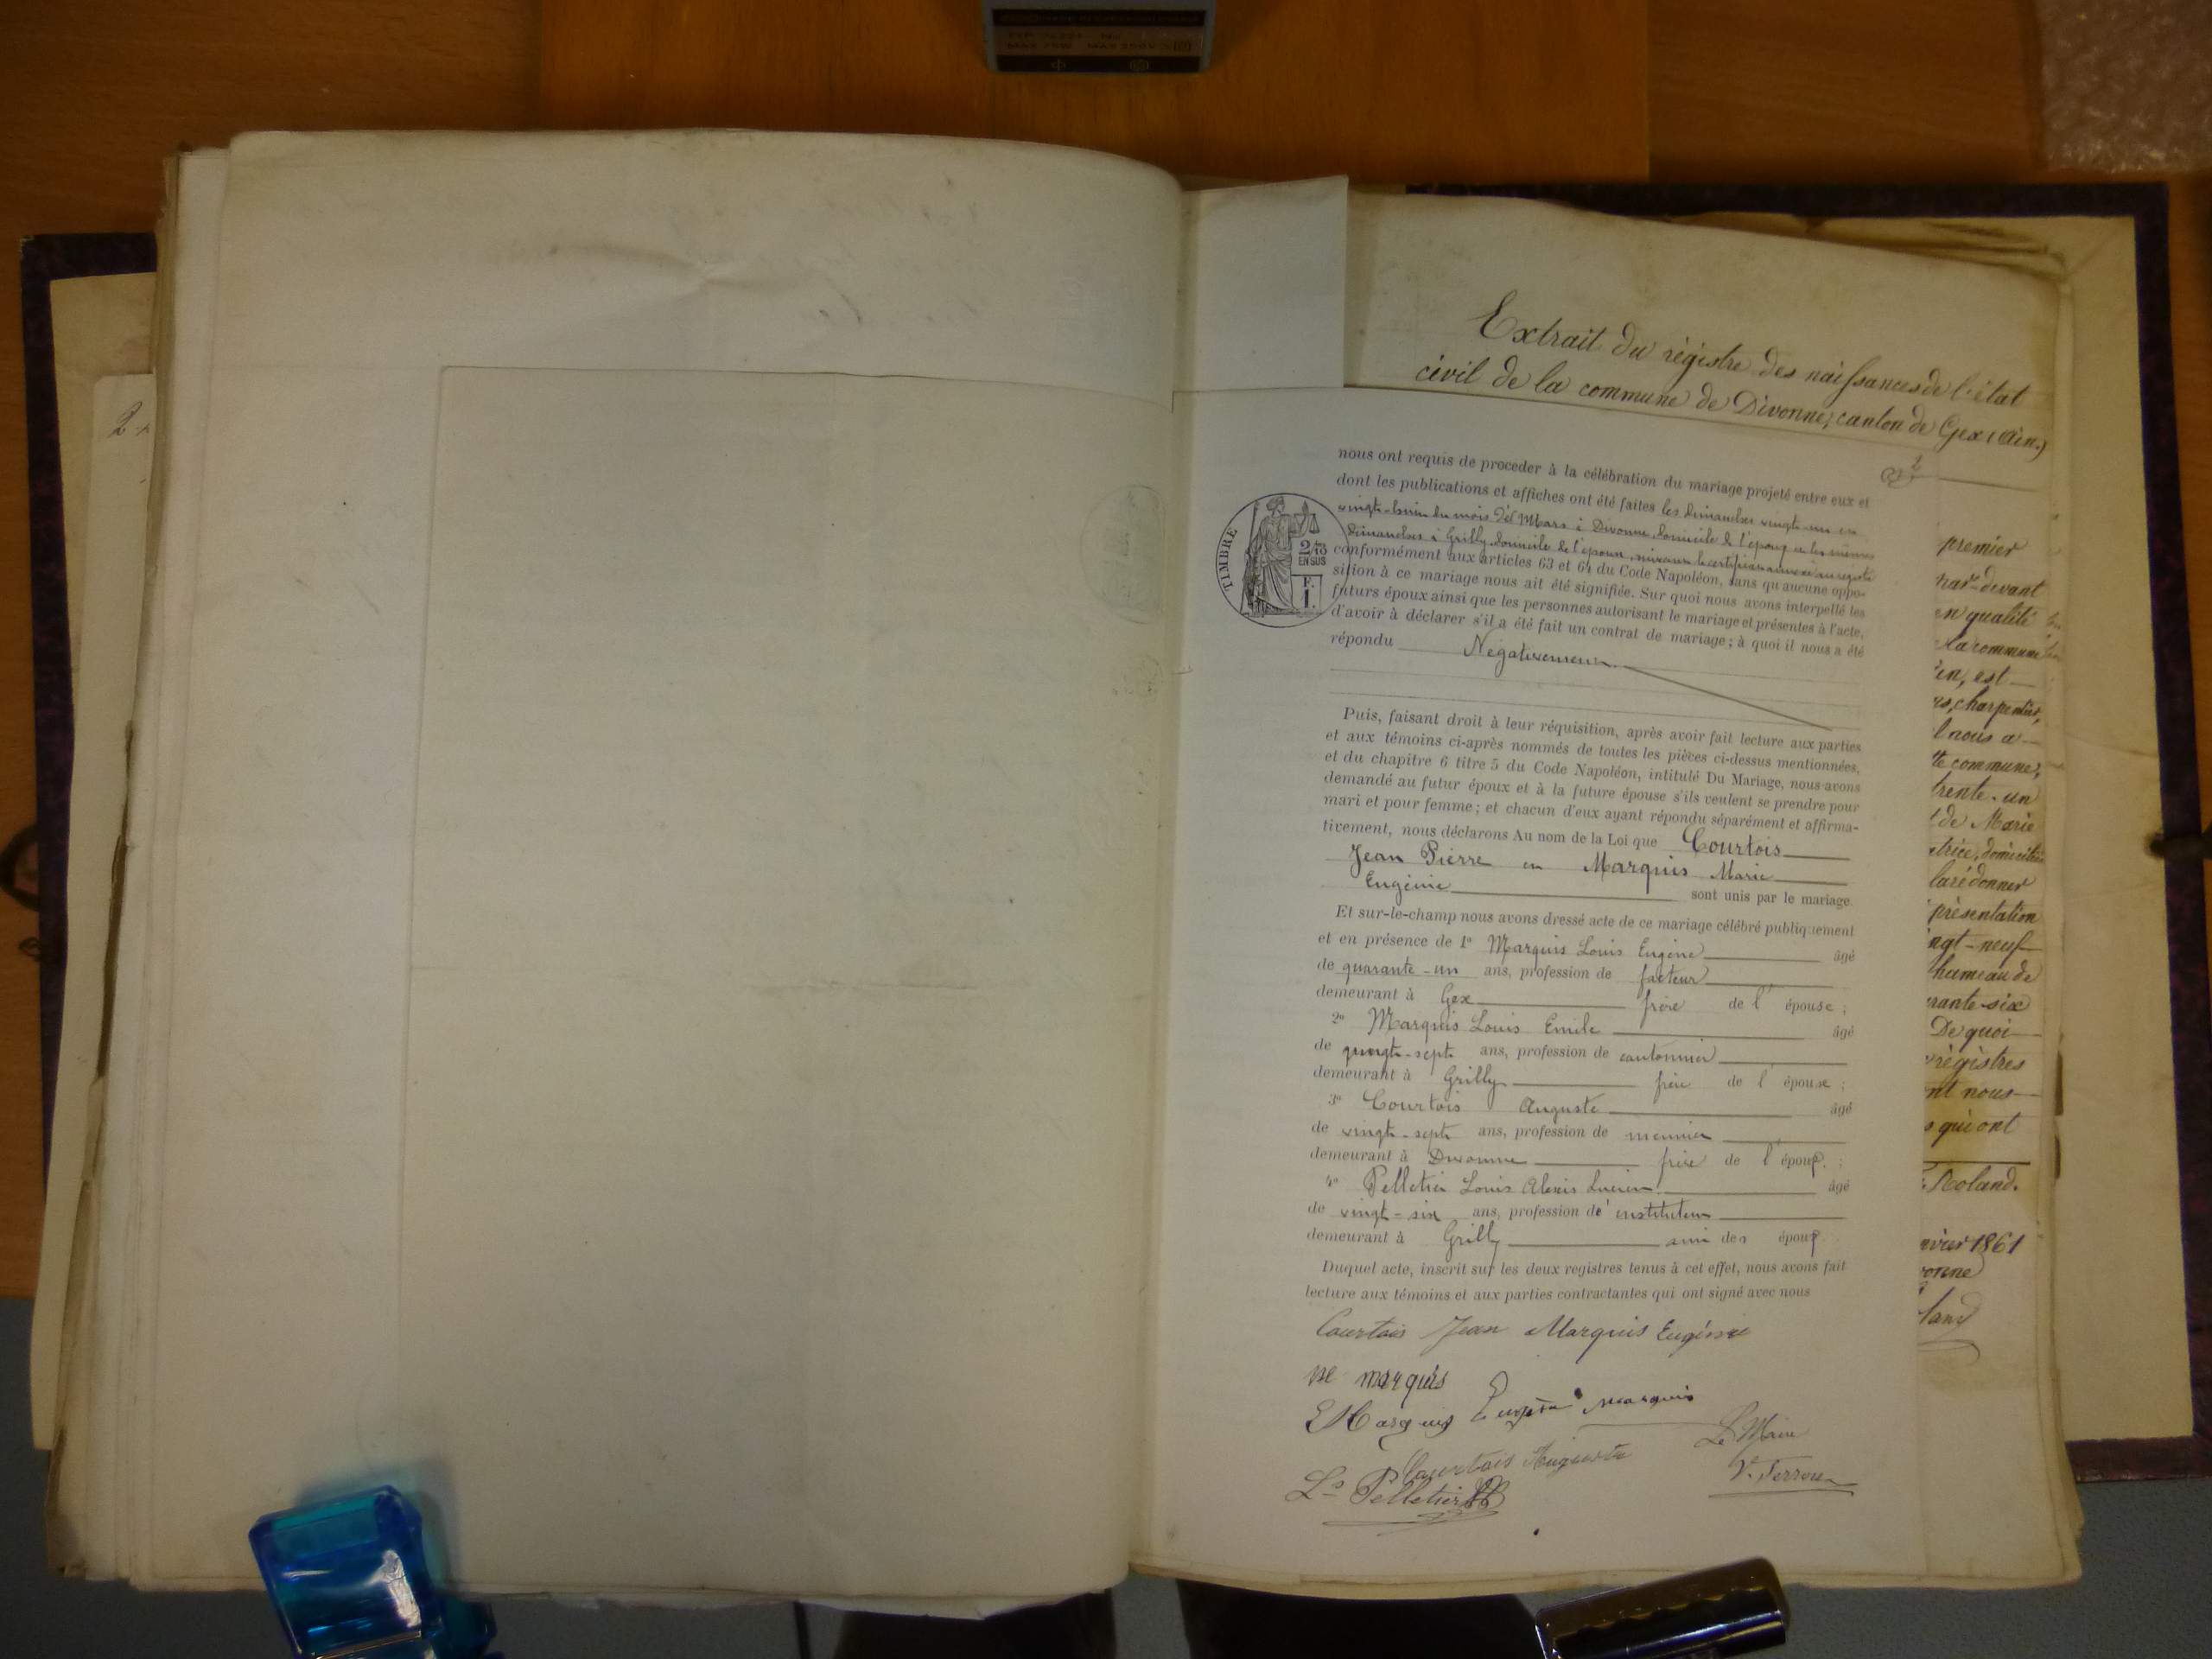 2
Extrait du règistre des naissances de l'état
civil de la commune de Divonne, canton de Gex (Ain.)
nous ont requis de proceder à la célébration du mariage projeté entre eux et
dont les publications et affiches ont été faites les dimanches vingt-un et
vingt-huit du mois de Mars à Divonne, domicile de l'époux et les mêmes
dimanches à Grilly, domicile de l'épouse, suivant le certificat annexé au registre
TIMBRE
2/10
EN SUS
F.
1.
conformément aux articles 63 et 64 du Code Napoléon, sans qu'aucune oppo-
sition à ce mariage nous ait été signifiée. Sur quoi nous avons interpellé les
futurs époux ainsi que les personnes autorisant le mariage et présentes à l'acte,
d'avoir à déclarer s'il a été fait un contrat de mariage; à quoi il nous a été
répondu Négativement
Puis, faisant droit à leur réquisition, après avoir fait lecture aux parties
et aux témoins ci-après nommés de toutes les pièces ci-dessus mentionnées,
et du chapitre 6 titre 5 du Code Napoléon, intitulé Du Mariage, nous avons
demandé au futur époux et à la future épouse s'ils veulent se prendre pour
mari et pour femme; et chacun d'eux ayant répondu séparément et affirma-
tivement, nous déclarons Au nom de la Loi que Courtois
Jean Pierre et Marquis Marie
Eugénie sont unis par le mariage.
Et sur-le-champ nous avons dressé acte de ce mariage célébré publiquement
et en présence de 1° Marquis Louis Eugène âgé
de quarante-un ans, profession de facteur
demeurant à Gex frère de l'épouse;
2° Marquis Louis Emile âgé
de vingt-sept ans, profession de cantonnier
demeurant à Grilly frère de l'épouse;
3° Courtois Auguste âgé
de vingt-sept ans, profession de meunier
demeurant à Divonne frère de l'époux;
4° Pelletier Louis Alexis Lucien âgé
de vingt-six ans, profession de instituteur
demeurant à Grilly ami des époux
Duquel acte, inscrit sur les deux registres tenus à cet effet, nous avons fait
lecture aux témoins et aux parties contractantes qui ont signé avec nous
Courtois Jean Marquis Eugénie
marquis
E Marquis Eugène marquis
Courtois Auguste
Le Maire
Ls Pelletier
premier
par-devant
en qualité
la commune
est
charpentier,
nous a
commune,
trente-un
de Marie
domiciliée
donner
présentation
vingt-neuf
hameau de
De quoi
règistres
nous
qui ont
Roland.
1861